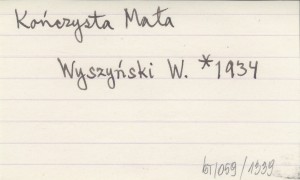 Kończysta Mała
Wyszyński W. *1934
bf/059/1339